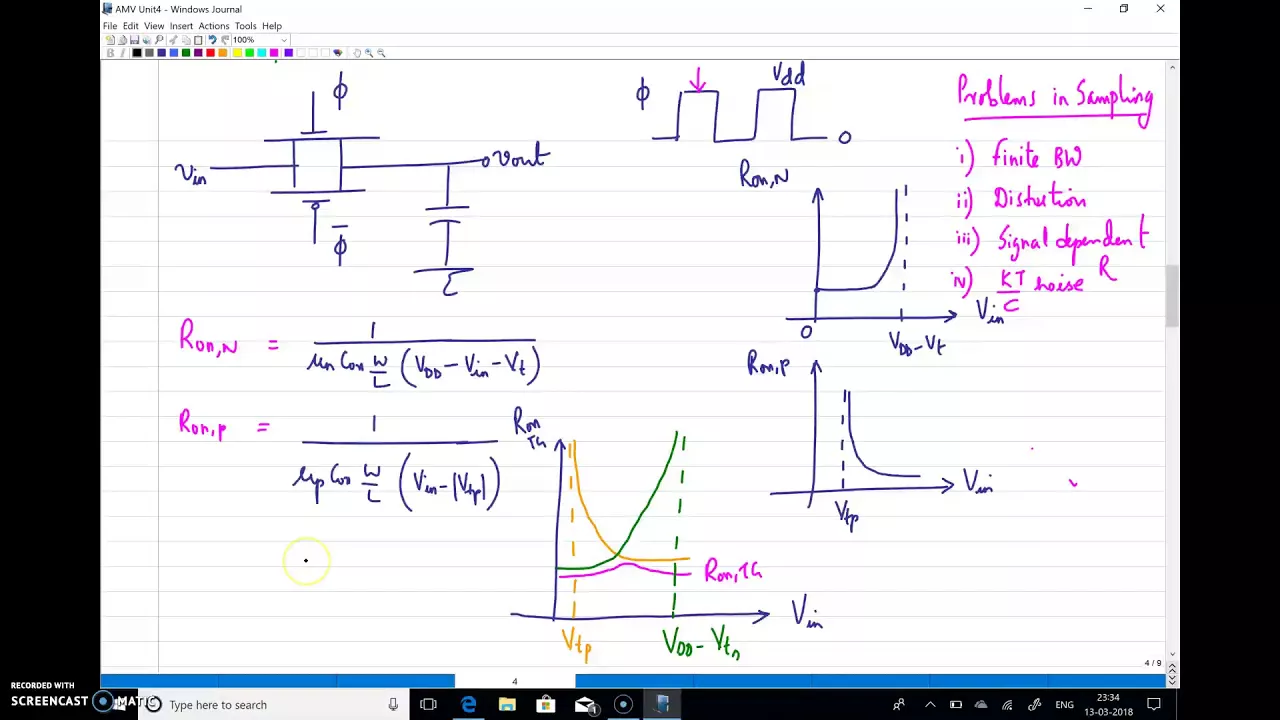 AMV Unit4 - Windows Journal
File Edit View Insert Actions Tools Help
100%
ϕ
Vin
Vout
ϕ̅
ϕ
Vdd
0
Problems in Sampling
i) finite BW
ii) Distortion
iii) Signal dependent R
iv) KT/C noise
Ron,N
0
VDD-Vt
Vin
Ron,N = 1 / μn Cox W/L (VDD - Vin - Vt)
Ron,P
Vtp
Vin
Ron,P = 1 / μp Cox W/L (Vin - |Vtp|)
Ron TG
Ron,TG
Vin
Vtp
VDD - Vtn
4 / 9
4
RECORDED WITH
SCREENCAST MATIC
Type here to search
1
ENG
23:34
13-03-2018